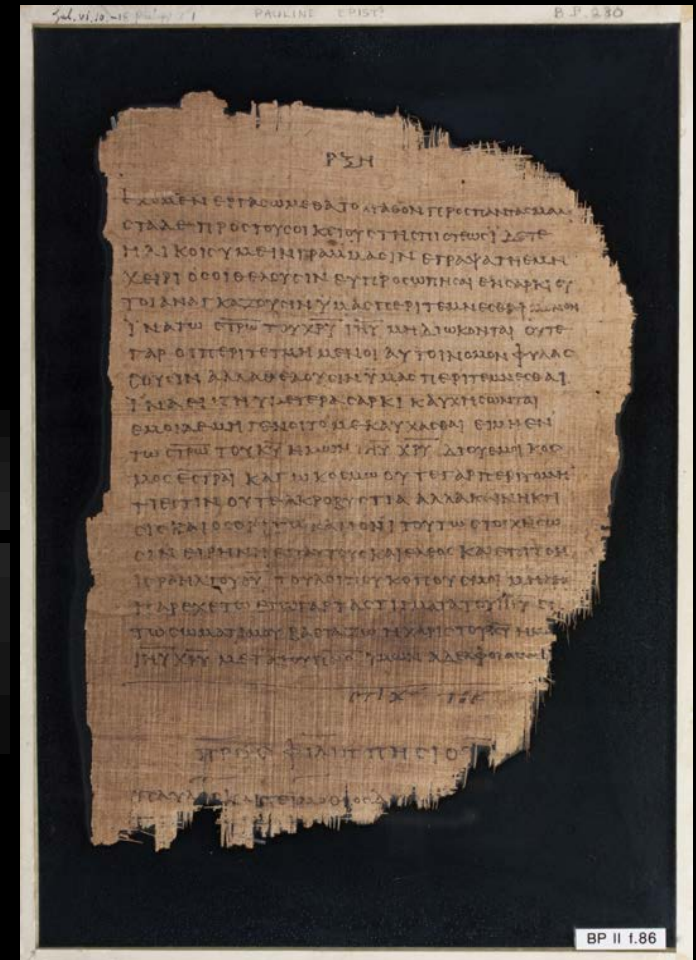 Gal. vi, 10.–18 PAULINE EPISTS B.P. 230
ΡΞΗ
ΕΧΟΜΕΝ ΕΡΓΑΣΩΜΕΘΑ ΤΟ ΑΓΑΘΟΝ ΠΡΟΣ ΠΑΝΤΑΣ ΜΑΛΙ
ΣΤΑ ΔΕ ΠΡΟΣ ΤΟΥΣ ΟΙΚΕΙΟΥΣ ΤΗΣ ΠΙΣΤΕΩΣ ΙΔΕΤΕ
ΗΛΙΚΟΙΣ ΥΜΕΙΝ ΓΡΑΜΜΑΣΙΝ ΕΓΡΑΨΑ ΤΗ ΕΜΗ
ΧΕΙΡΙ ΟΣΟΙ ΘΕΛΟΥΣΙΝ ΕΥΠΡΟΣΩΠΗΣΑΙ ΕΝ ΣΑΡΚΙ ΟΥ
ΤΟΙ ΑΝΑΓΚΑΖΟΥΣΙΝ ΥΜΑΣ ΠΕΡΙΤΕΜΝΕΣΘΑΙ
ΙΝΑ ΤΩ ΣΤΡΩ ΤΟΥ ΧΡΥ ΙΗΥ ΜΗ ΔΙΩΚΟΝΤΑΙ ΟΥΤΕ
ΓΑΡ ΟΙ ΠΕΡΙΤΕΤΜΗΜΕΝΟΙ ΑΥΤΟΙ ΝΟΜΟΝ ΦΥΛΑΣ
ΣΟΥΣΙΝ ΑΛΛΑ ΘΕΛΟΥΣΙΝ ΥΜΑΣ ΠΕΡΙΤΕΜΝΕΣΘΑΙ
ΙΝΑ ΕΝ ΤΗ ΥΜΕΤΕΡΑ ΣΑΡΚΙ ΚΑΥΧΗΣΩΝΤΑΙ
ΕΜΟΙ ΔΕ ΜΗ ΓΕΝΟΙΤΟ ΜΕ ΚΑΥΧΑΣΘΑΙ ΕΙ ΜΗ ΕΝ
ΤΩ ΣΤΡΩ ΤΟΥ ΚΥ ΗΜΩΝ ΙΗΥ ΧΡΥ ΔΙ ΟΥ ΕΜΟΙ ΚΟΣ
ΜΟΣ ΕΣΤΡΑΙ ΚΑΓΩ ΚΟΣΜΩ ΟΥΤΕ ΓΑΡ ΠΕΡΙΤΟΜΗ
ΤΙ ΕΣΤΙΝ ΟΥΤΕ ΑΚΡΟΒΥΣΤΙΑ ΑΛΛΑ ΚΑΙΝΗ ΚΤΙ
ΣΙΣ ΚΑΙ ΟΣΟΙ ΤΩ ΚΑΝΟΝΙ ΤΟΥΤΩ ΣΤΟΙΧΗΣΩ
ΣΙΝ ΕΙΡΗΝΗ ΕΠ ΑΥΤΟΥΣ ΚΑΙ ΕΛΕΟΣ ΚΑΙ ΕΠΙ ΤΟΝ
ΙΣΡΑΗΛ ΤΟΥ ΘΥ ΤΟΥ ΛΟΙΠΟΥ ΚΟΠΟΥΣ ΜΟΙ
ΠΑΡΕΧΕΤΩ ΕΓΩ ΓΑΡ ΤΑ ΣΤΙΓΜΑΤΑ ΤΟΥ ΙΗΥ ΕΝ
ΤΩ ΣΩΜΑΤΙ ΜΟΥ ΒΑΣΤΑΖΩ Η ΧΑΡΙΣ ΤΟΥ ΚΥ
ΙΗΥ ΧΡΥ ΜΕΤΑ ΤΟΥ ΠΝΣ ΥΜΩΝ ΑΔΕΛΦΟΙ ΑΜΗΝ
ΣΤΙΧ ΤΟΕ
ΠΡΟΣ ΦΙΛΙΠΠΗΣΙΟΥΣ
ΠΑΥΛΟΣ ΚΑΙ ΤΕΙΜΟΘΕΟΣ
BP II f.86